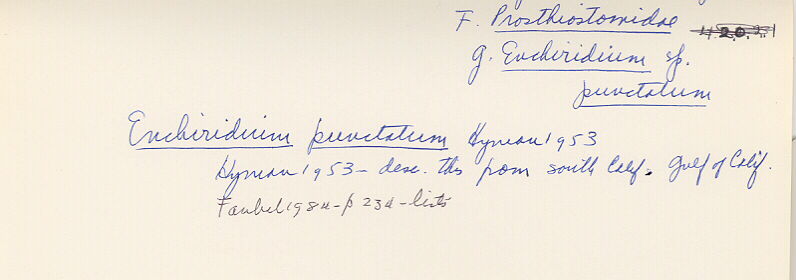 F. Prosthiostomidae
g. Enchiridium sp.
punctatum
Enchiridium punctatum Hyman 1953
Hyman 1953 - desc. this from south Calif. Gulf of Calif.
Faubel 1984 - p 234 - lists